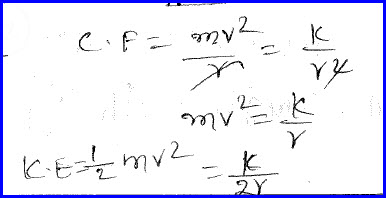 C.F = mv²/r = k/r²
mv² = k/r
K.E = 1/2 mv² = k/2r